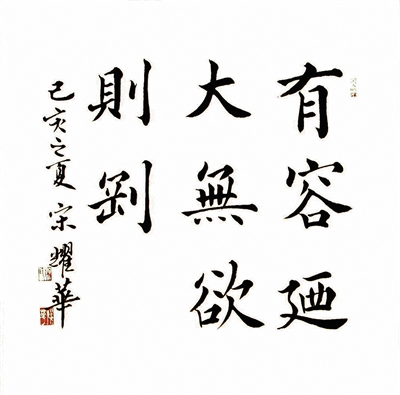 有容廼
大無欲
則剛
己亥之夏 宋耀華